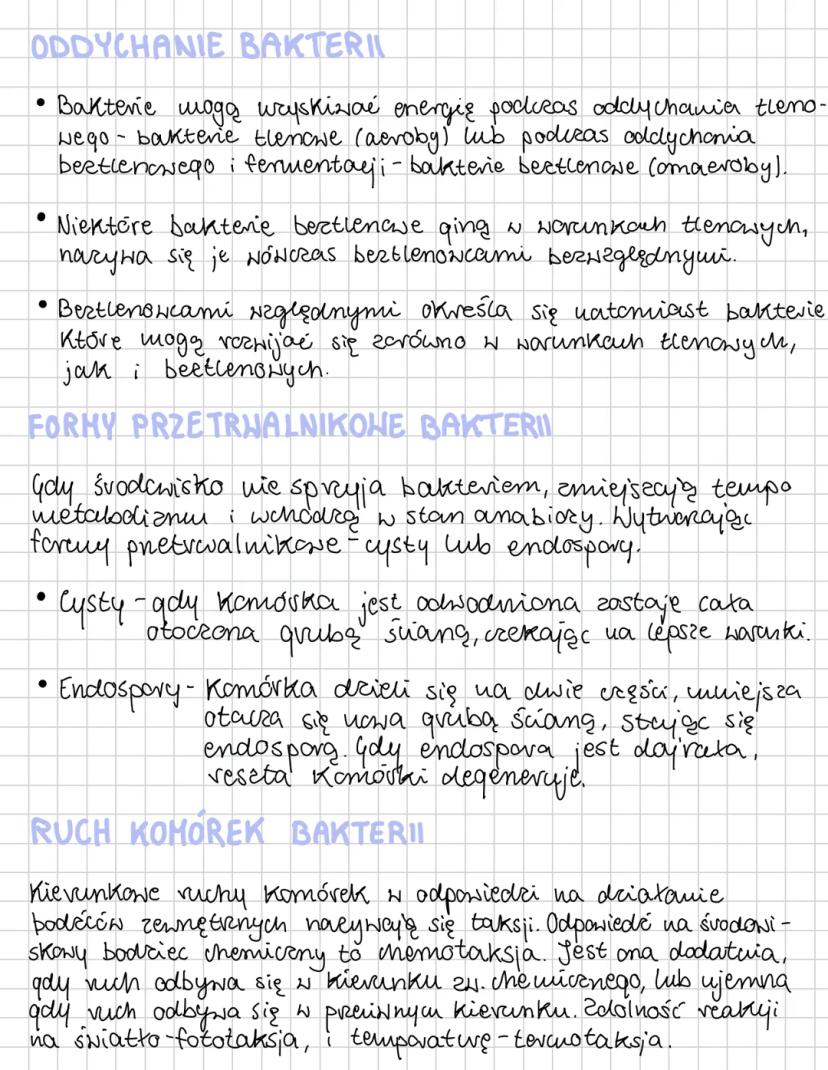 ODDYCHANIE BAKTERII
• Bakterie mogą uzyskiwać energię podczas oddychania tleno-
wego - bakterie tlenowe (aeroby) lub podczas oddychania
beztlenowego i fermentacji - bakterie beztlenowe (anaeroby).
• Niektóre bakterie beztlenowe giną w warunkach tlenowych,
nazywa się je wówczas beztlenowcami bezwzględnymi.
• Beztlenowcami względnymi określa się natomiast bakterie
które mogą rozwijać się zarówno w warunkach tlenowych,
jak i beztlenowych.
FORMY PRZETRWALNIKOWE BAKTERII
Gdy środowisko nie sprzyja bakteriem, zmiejszają tempo
metabolizmu i wchodzą w stan anabiozy. Wytwarzając
formy przetrwalnikowe - cysty lub endospory.
• Cysty - gdy komórka jest odwodniona zostaje cała
otoczona grubą ścianą, czekając na lepsze warunki.
• Endospory - Komórka dzieli się na dwie części, mniejsza
otacza się nowa grubą ścianą, stając się
endosporą. Gdy endospora jest dojrzała,
reszta komórki degeneruje.
RUCH KOMÓREK BAKTERII
Kierunkowe ruchy komórek w odpowiedzi na działanie
bodźców zewnętrznych nazywają się taksji. Odpowiedź na środowi-
skowy bodziec chemiczny to chemotaksja. Jest ona dodatnia,
gdy ruch odbywa się w kierunku zw. chemicznego, lub ujemną
gdy ruch odbywa się w przeciwnym kierunku. Zdolność reakcji
na światło - fototaksja, i temperaturę - termotaksja.